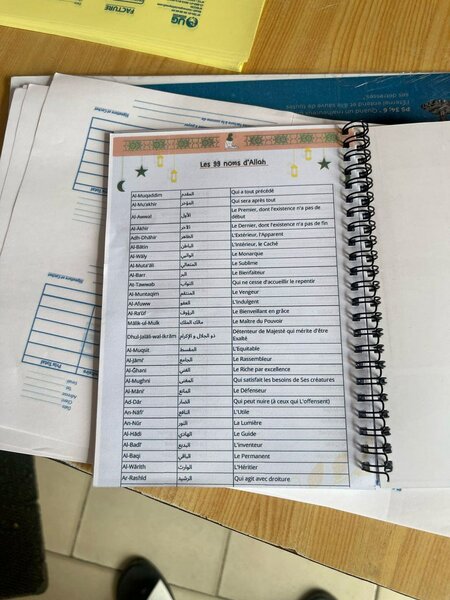 UG
FACTURE
PS 34, 6 Quand un malheureux
l'Éternel entend et il le sauve de toutes
ses détresses.
Signature et Cachet
Signature et Cachet
Prix Total
Prix Total
Date
Client
Adresse
Tel
Les 99 noms d'Allah
Al-Muqaddim المقدم Qui a tout précédé
Al-Mu'akhir المؤخر Qui sera après tout
Al-Awwal الأول Le Premier, dont l'existence n'a pas de
début
Al-Akhir الآخر Le Dernier, dont l'existence n'a pas de fin
Adh-Dhâhir الظاهر L'Extérieur, l'Apparent
Al-Bâtin الباطن L'Intérieur, le Caché
Al-Wâly الوالي Le Monarque
Al-Muta'âli المتعالي Le Sublime
Al-Barr البر Le Bienfaiteur
At-Tawwab التواب Qui ne cesse d'accueillir le repentir
Al-Muntaqim المنتقم Le Vengeur
Al-Afuww العفو L'Indulgent
Al-Ra'ûf الرؤوف Le Bienveillant en grâce
Mâlik-ul-Mulk مالك الملك Le Maître du Pouvoir
Dhul-Jalâli-wal-Ikrâm ذو الجلال و الإكرام Détenteur de Majesté qui mérite d'être
Exalté
Al-Muqsit المقسط L'Equitable
Al-Jâmi' الجامع Le Rassembleur
Al-Ghani الغني Le Riche par excellence
Al-Mughni المغني Qui satisfait les besoins de Ses créatures
Al-Mâni' المانع Le Défenseur
Ad-Dâr الضار Qui peut nuire (à ceux qui L'offensent)
An-Nâfi' النافع L'Utile
An-Nûr النور La Lumière
Al-Hâdi الهادي Le Guide
Al-Badi' البديع L'inventeur
Al-Baqi الباقي Le Permanent
Al-Wârith الوارث L'Héritier
Ar-Rashid الرشيد Qui agit avec droiture